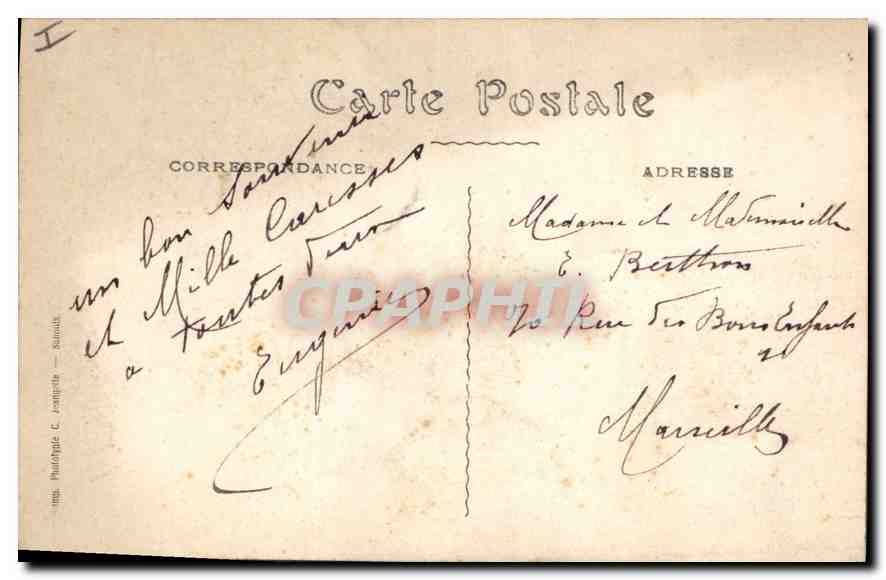 I
Carte Postale
CORRESPONDANCE
ADRESSE
un bon Souvenir
et Mille Caresses
a toutes deux
Eugénie
Madame et Mademoiselle
E. Berthon
70 Rue des Bons Enfants
Marseille
Imp. Phototypie C. Jeangette
CPAPHIL